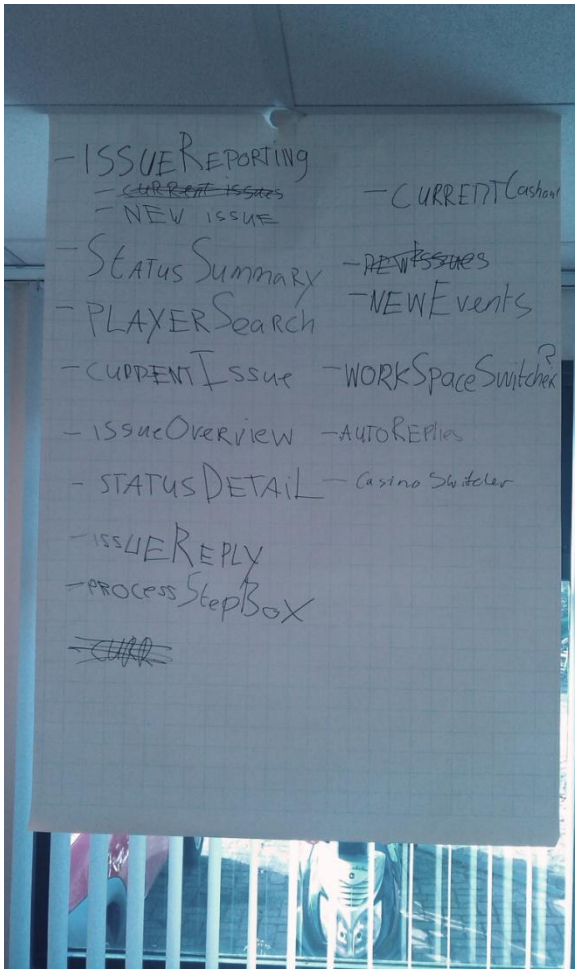 - ISSUEREPORTING
- CURRENT ISSUES
- NEW ISSUE
- STATUSSUMMARY
- PLAYERSEARCH
- CURRENTISSUE
- ISSUEOVERVIEW
- STATUSDETAIL
- ISSUEREPLY
- PROCESSSTEPBOX
- CURR
- CURRENTCashout
- NEWISSUES
- NEWEvents
- WORKSpaceSwitcher?
- AUTOREPlies
- Casino Switcher